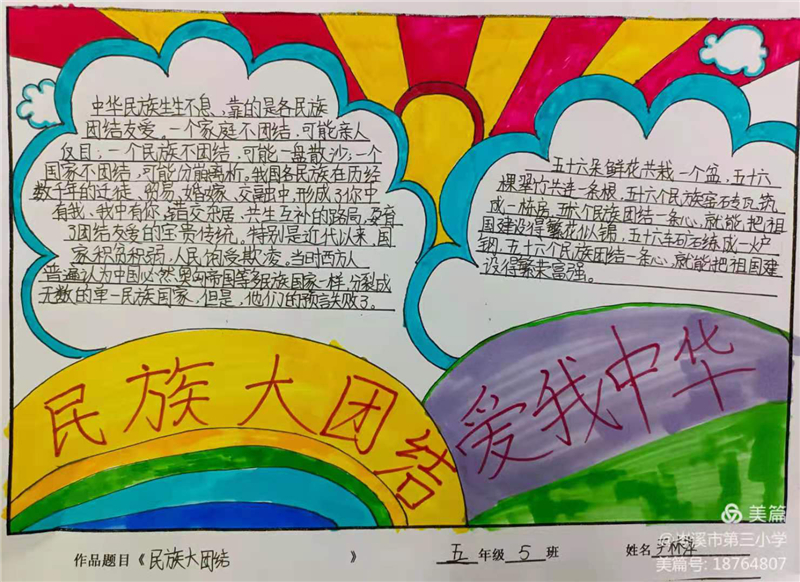 中华民族生生不息、靠的是各民族
团结友爱。一个家庭不团结,可能亲人
反目;一个民族不团结,可能一盘散沙;一个
国家不团结,可能分崩离析。我国各民族在历经
数千年的迁徒、贸易、婚嫁、交融中,形成了你中
有我、我中有你、错交杂居、共生互补的路局,
了团结友爱的宝贵传统。特别是近代以来,国
家积贫积弱,人民饱受欺凌,当时西方人
普遍认为中国必然奥匈帝国等多民族国家一样,分裂成
无数的单一民族国家,但是,他们的预言失败了。
五十六朵鲜花共栽一个盆,五十六
棵翠竹共连一条根,五十六个民族
成一栋房,五十六个民族团结一条心,就能把祖
国建设得繁花似锦,五十六车矿石练成一炉
钢,五十六个民族团结一条心,就能把祖国建
设得繁荣富强。
民族大团结
爱我中华
作品题目《民族大团结》
五年级5班
姓名
美篇
@岑溪市第三小学
美篇号: 18764807